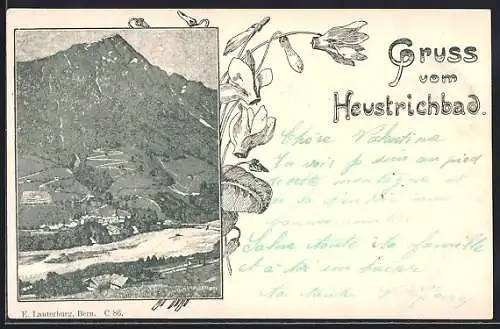 Gruss
vom
Heustrichbad.
Chère Valentina
Tu vois je suis au pied
de cette montagne et
Salue toute ta famille
et à toi un baiser
ta tante
E. Lauterburg, Bern. C 86.